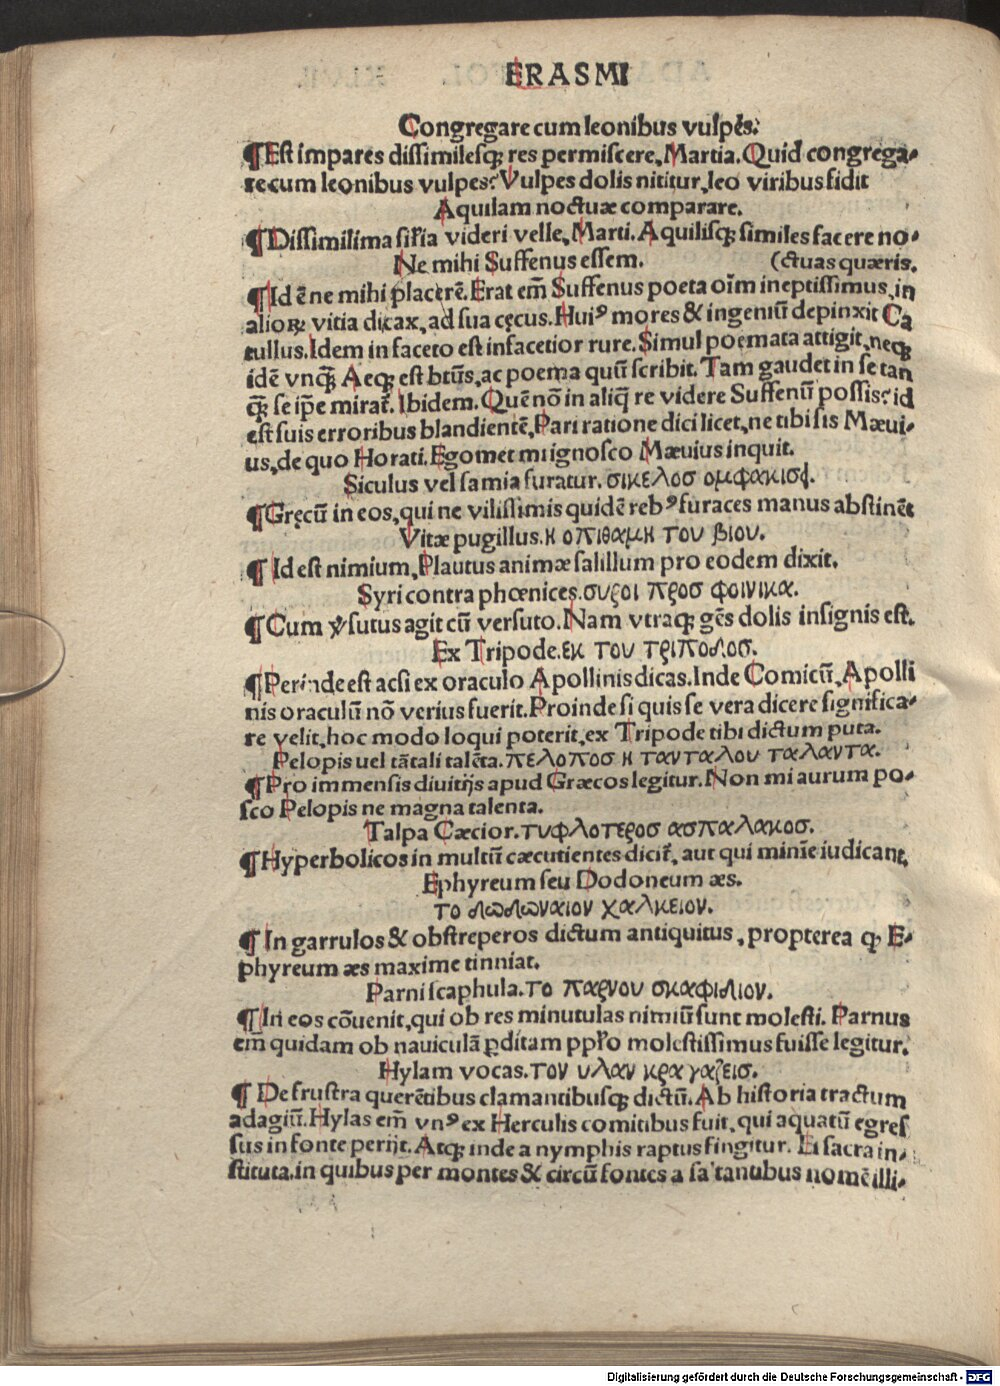 ERASMI
Congregare cum leonibus vulpes.
¶Est impares dissimilesq; res permiscere. Martia. Quid congrega-
re cum leonibus vulpes? Vulpes dolis nititur, leo viribus fidit
Aquilam noctuæ comparare.
¶Dissimilima sil'ia videri velle. Marti. Aquilisq; similes facere no-
Ne mihi Suffenus essem. (ctuas quæris.
¶Id ē ne mihi placerē. Erat em̄ Suffenus poeta oīm ineptissimus, in
alioꝝ vitia dicax, ad sua cęcus. Huiꝰ mores & ingeniū depinxit Ca
tullus. Idem in faceto est infacetior rure. Simul poemata attigit, neq;
idē vnq̄; Aeq; est bt̄us, ac poema quū scribit. Tam gaudet in se tan
q̄; se ip̄e mirat̄. Ibidem. Quē nō in aliq̄ re videre Suffenū possis? id
est suis erroribus blandientē, Pari ratione dici licet, ne tibi sis Mæui-
us, de quo Horati. Egomet mi ignosco Mæuius inquit.
Siculus vel samia furatur. σικελοσ ομφακισϕ.
¶Gręcū in eos, qui ne vilissimis quidē rebꝰ furaces manus abstinēt
Vitæ pugillus. η οπιθαμη του βιου.
¶Id est nimium, Plautus animæ salillum pro eodem dixit.
Syri contra phœnices. συροι προσ φοινικα.
¶Cum v̓sutus agit cū versuto. Nam vtraq; gēs dolis insignis est.
Ex Tripode. εκ του τριποδοσ.
¶Perinde est acsi ex oraculo Apollinis dicas. Inde Comicū, Apolli
nis oraculū nō verius fuerit. Proinde si quis se vera dicere significa-
re velit, hoc modo loqui poterit, ex Tripode tibi dictum puta.
Pelopis uel tātali talēta. πελοποσ η τανταλου ταλαντα.
¶Pro immensis diuitijs apud Græcos legitur. Non mi aurum po-
sco Pelopis ne magna talenta.
Talpa Cæcior. τυφλοτεροσ ασπαλακοσ.
¶Hyperbolicos in multū cæcutientes dicit̄, aut qui minīe iudicant,
Ephyreum seu Dodoneum æs.
το δωδωναιον χαλκειον.
¶In garrulos & obstreperos dictum antiquitus, propterea q; E-
phyreum æs maxime tinniat.
Parni scaphula. το παρνου σκαφιδιον.
¶In eos cōuenit, qui ob res minutulas nimiū sunt molesti. Parnus
em̄ quidam ob nauiculā ꝑditam ppł'o molestissimus fuisse legitur.
Hylam vocas. τον υλαν κραγαζεισ.
¶De frustra querētibus clamantibusq; dictū. Ab historia tractum
adagiū. Hylas em̄ vnꝰ ex Herculis comitibus fuit, qui aquatū egres
sus in fonte perijt. Atq; inde a nymphis raptus fingitur. Et sacra in-
stituta, in quibus per montes & circū fontes a sa tantibus nomē illi-
Digitalisierung gefördert durch die Deutsche Forschungsgemeinschaft - DFG